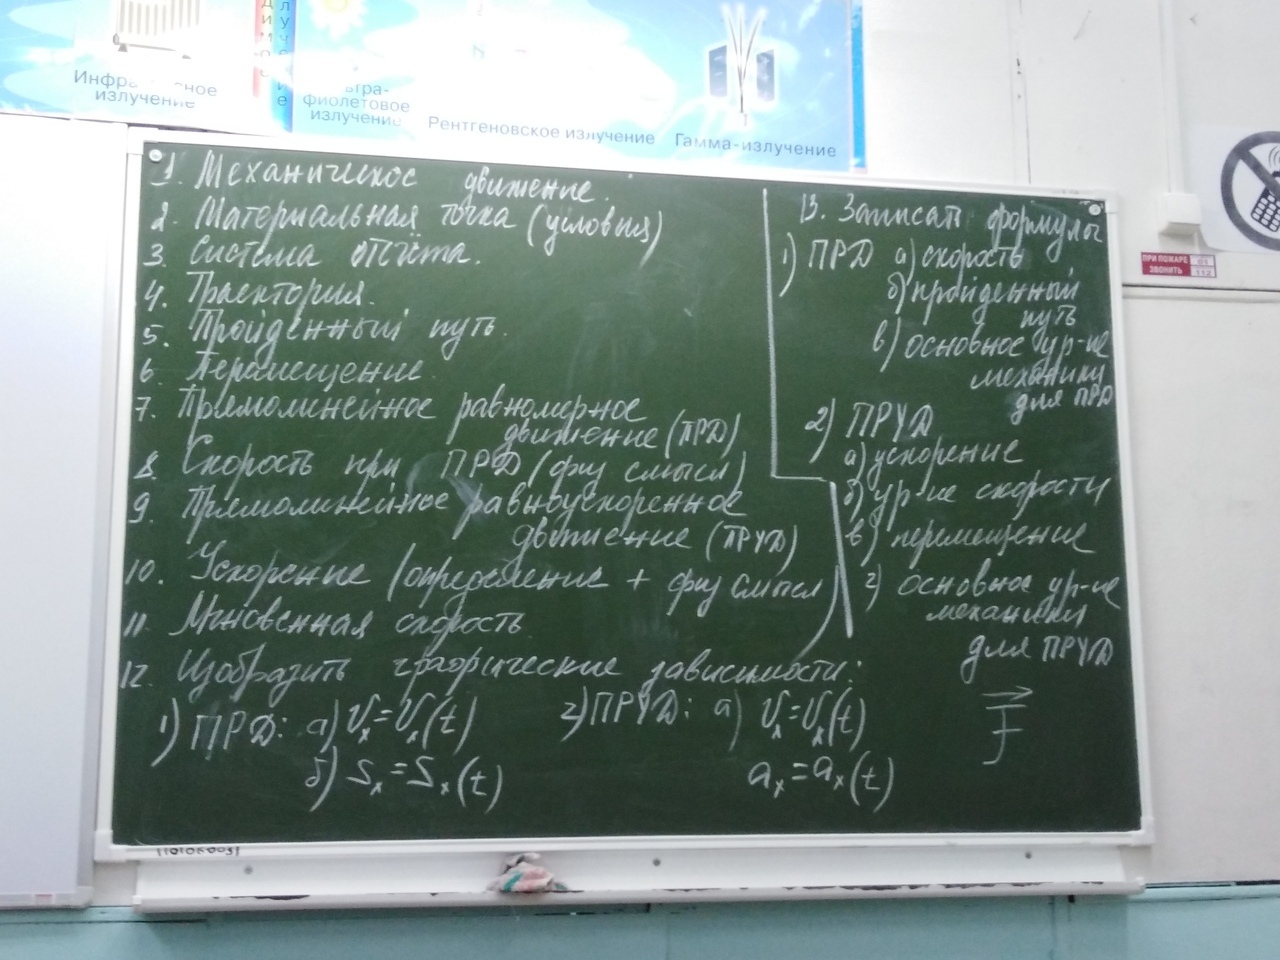 Инфра сное
излучение
фиолетовое
излучение
Рентгеновское излучение
Гамма-излучение
1. Механическое движение.
2. Материальная точка (условия)
3. Система отсчёта.
4. Траектория.
5. Пройденный путь.
6. Перемещение.
7. Прямолинейное равномерное
движение (ПРД)
8. Скорость при ПРД (физ смысл)
9. Прямолинейное равноускоренное
движение (ПРУД)
10. Ускорение (определение + физ смысл)
11. Мгновенная скорость.
12. Изобразить графические зависимости:
1) ПРД: а) υx = υx(t)
б) Sx = Sx(t)
2) ПРУД: а) υx = υx(t)
ax = ax(t)
13. Записать формулы
1) ПРД а) скорость
б) пройденный
путь
в) основное ур-ие
механики
для ПРД
2) ПРУД
а) ускорение
б) ур-ие скорости
в) перемещение
г) основное ур-ие
механики
для ПРУД
ПРИ ПОЖАРЕ
ЗВОНИТЬ
01
112